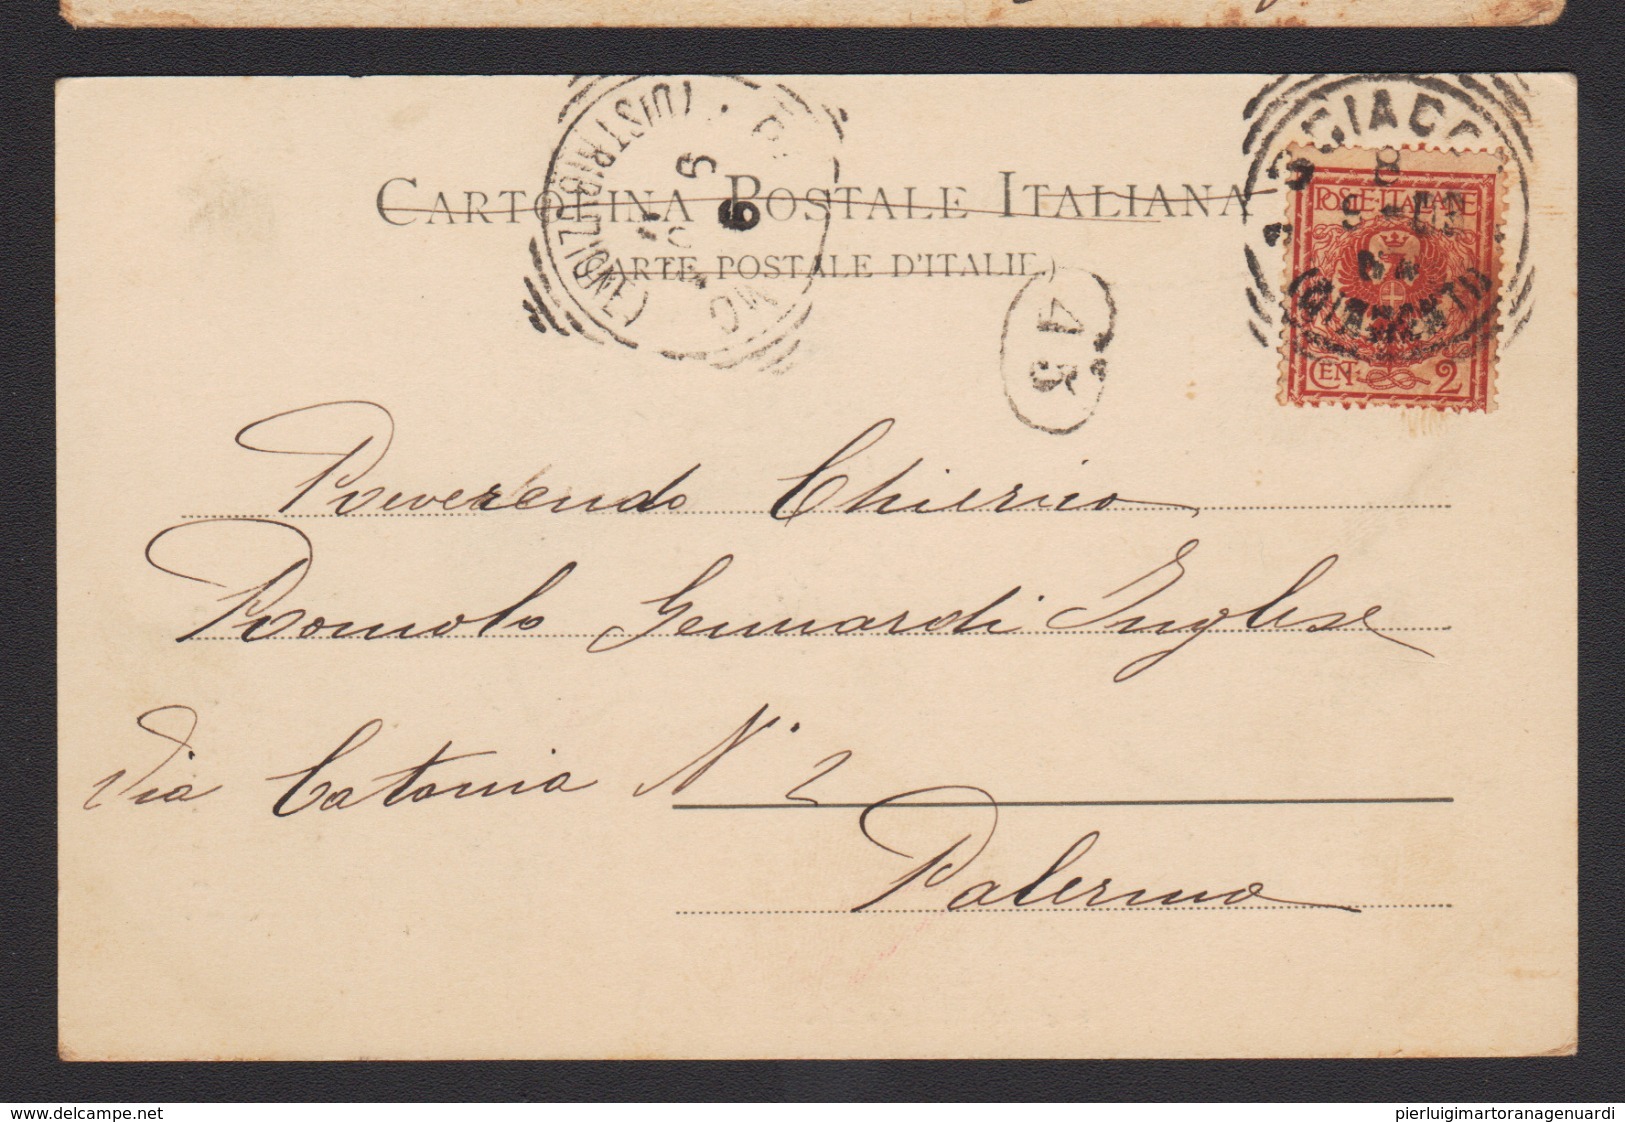 CARTOLINA POSTALE ITALIANA
(CARTE POSTALE D'ITALIE)
SCIACC
8
(GIRGENTI)
POSTE·ITALIANE
CENT. 2
(DISTRIBUZIONE)
6
9
45
Reverendo Chierico
Romolo Gennardi Inglese
Via Catania N. 2
Palermo
www.delcampe.net
pierluigimartoranagenuardi